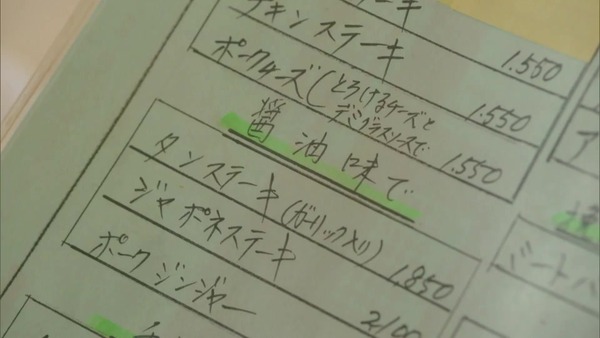 ーキ
チキンステーキ 1.550
ポークチーズ(とろけるチーズと
デミグラスソースで 1.550
1.550
醤油味で
タンステーキ(ガーリック入り) 1.850
ジャポネステーキ 2100
ポークジンジャー
ア
ミートハ